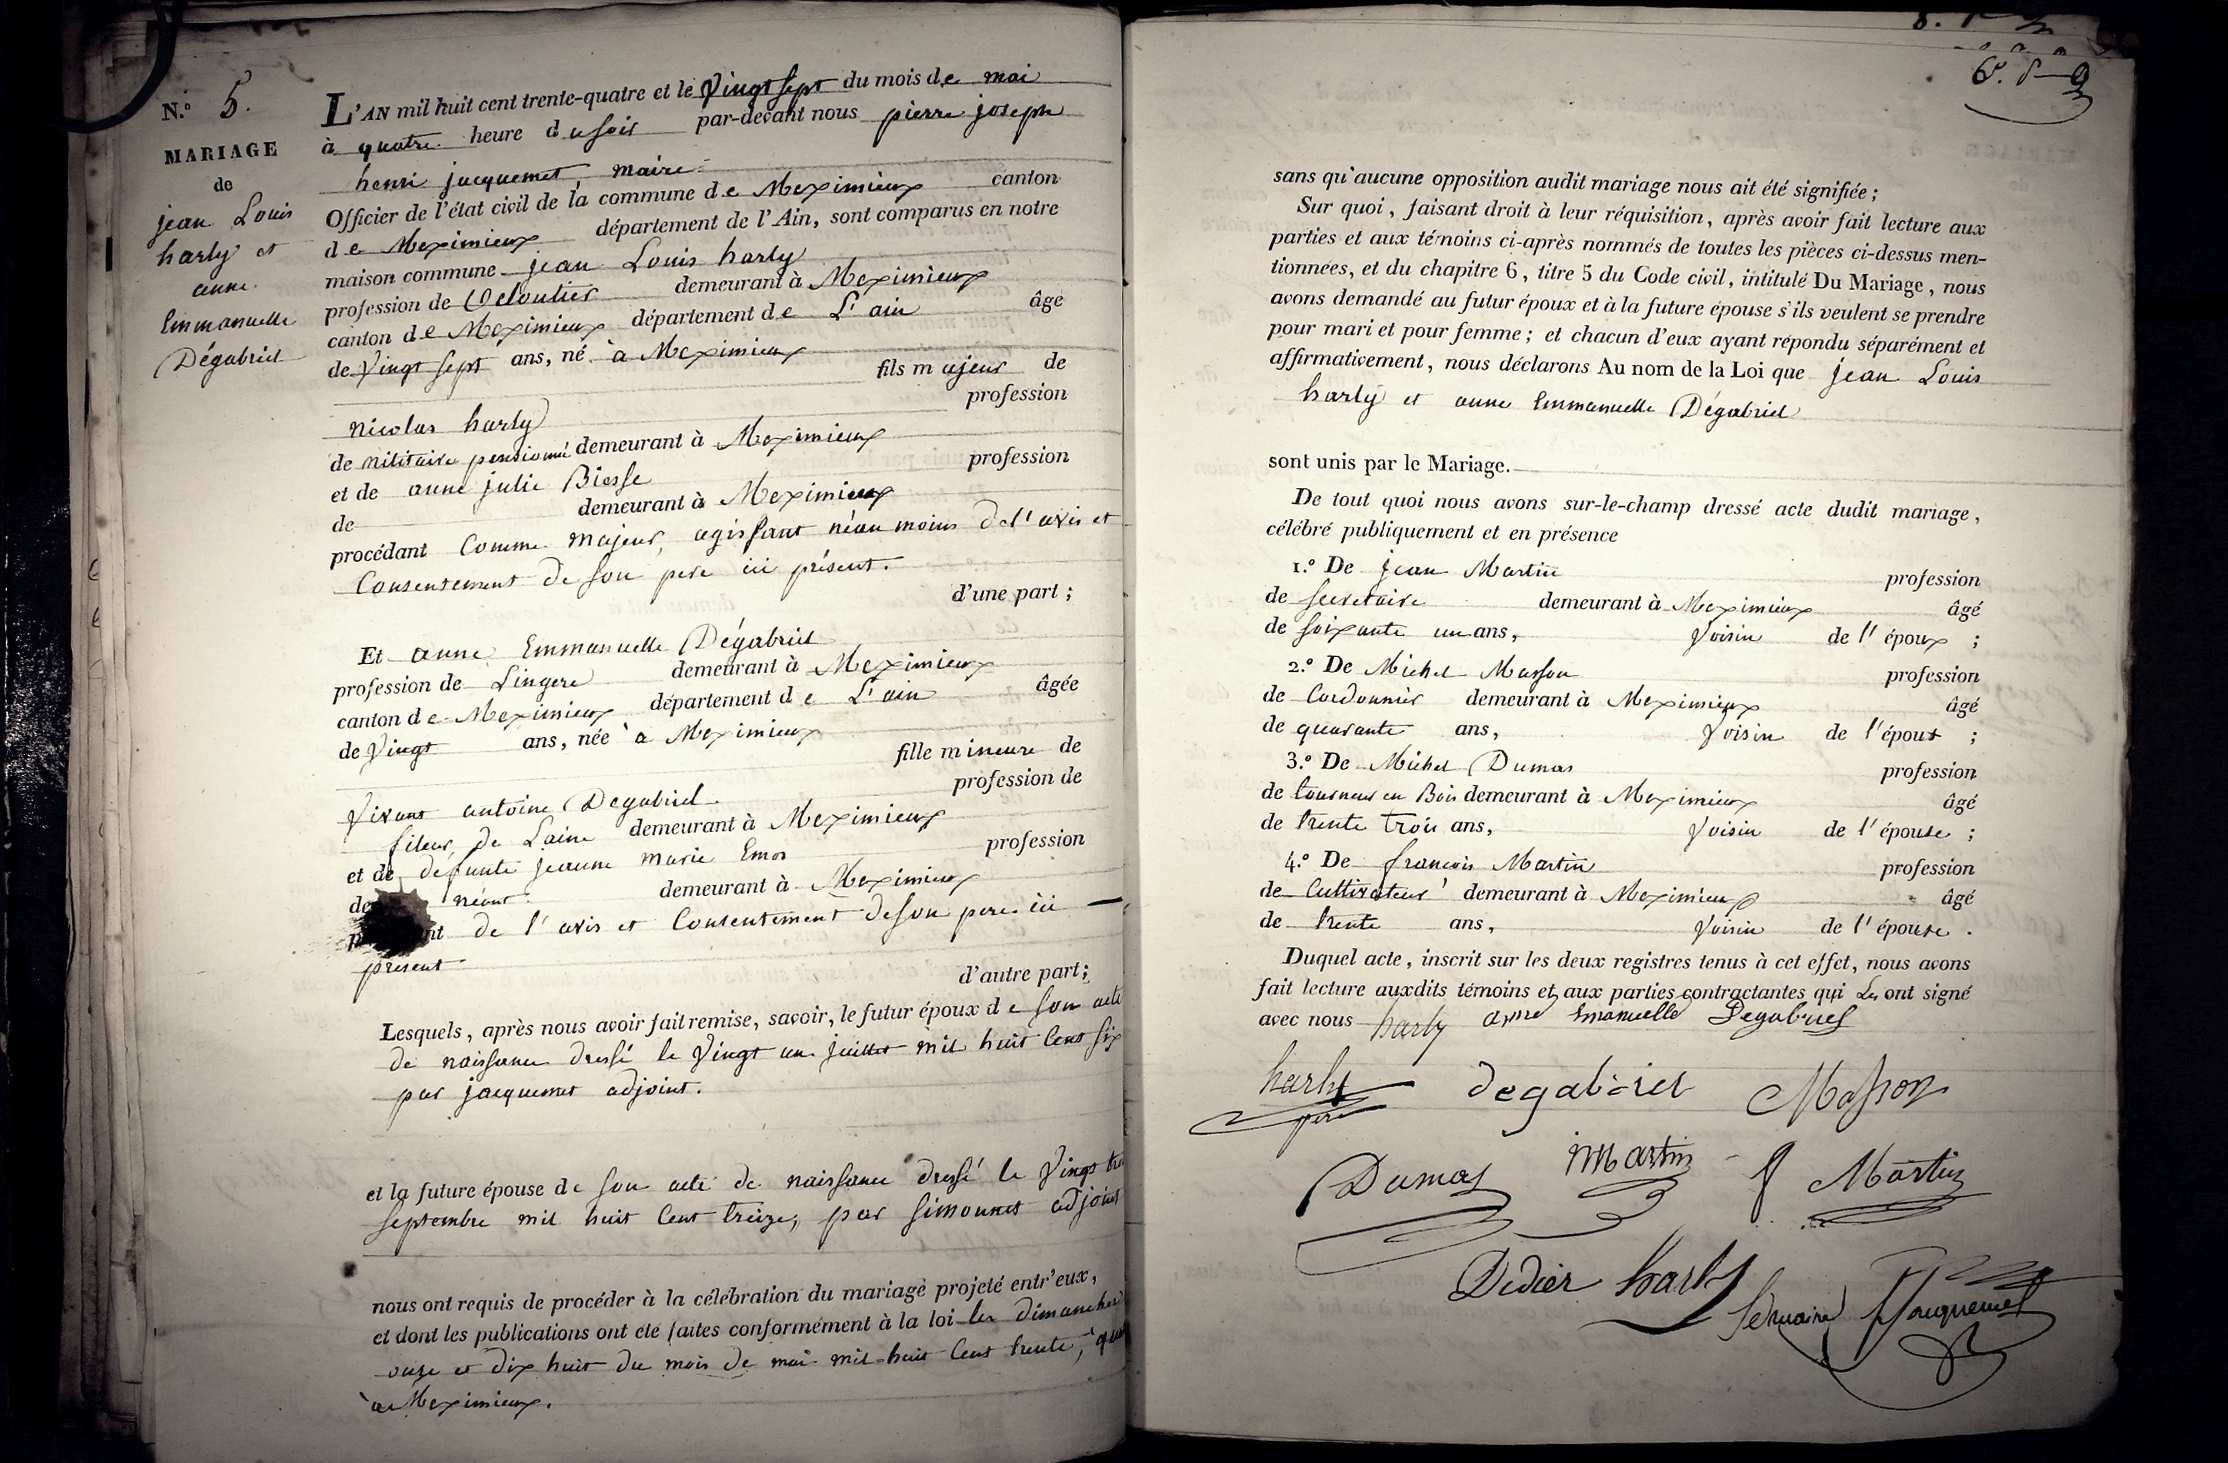 N.o 5.
MARIAGE
de
jean Louis
harly et
anne
Emmanuelle
Dégabriel
L'AN mil huit cent trente-quatre et le Vingt sept du mois de mai
à quatre heure du soir par-devant nous pierre joseph
henri jacquemet, maire
Officier de l'état civil de la commune de Meximieux canton
de Meximieux département de l'Ain, sont comparus en notre
maison commune jean Louis harly
profession de Cloutier demeurant à Meximieux
canton de Meximieux département de L'ain âgé
de Vingt sept ans, né à Meximieux
fils majeur de
nicolas harly profession
de militaire pensionné demeurant à Meximieux
et de anne julie Biesse profession
de demeurant à Meximieux
procédant Comme majeur, agissant néan moins de l'avis et
Consentement de son pere ici présent.
d'une part ;
Et anne Emmanuelle Dégabriel
profession de Lingere demeurant à Meximieux
canton de Meximieux département de L'ain âgée
de Vingt ans, née à Meximieux
fille mineure de
Vivant antoine Degabriel profession de
fileur de Laine demeurant à Meximieux
et de défunte jeanne marie Emos profession
de néant demeurant à Meximieux
de l'avis et Consentement de son pere ici
présent
d'autre part ;
Lesquels, après nous avoir fait remise, savoir, le futur époux de son acte
de naissance dressé le Vingt un juillet mil huit Cent Six
par jacquemet adjoint.
et la future épouse de son acte de naissance dressé le Vingt
septembre mil huit Cent treize, par Simonnet adjoint
nous ont requis de procéder à la célébration du mariage projeté entr'eux,
et dont les publications ont été faites conformément à la loi les dimanches
onze et dix huit du mois de mai mil huit Cent trente,
à Meximieux.
sans qu'aucune opposition audit mariage nous ait été signifiée ;
Sur quoi, faisant droit à leur réquisition, après avoir fait lecture aux
parties et aux témoins ci-après nommés de toutes les pièces ci-dessus men-
tionnées, et du chapitre 6, titre 5 du Code civil, intitulé Du Mariage, nous
avons demandé au futur époux et à la future épouse s'ils veulent se prendre
pour mari et pour femme ; et chacun d'eux ayant répondu séparément et
affirmativement, nous déclarons Au nom de la Loi que jean Louis
harly et anne Emmanuelle Dégabriel
sont unis par le Mariage.
De tout quoi nous avons sur-le-champ dressé acte dudit mariage,
célébré publiquement et en présence
1.o De jean Martin profession
de secretaire demeurant à Meximieux âgé
de soixante un ans, Voisin de l'époux ;
2.o De Michel Masson profession
de Cordonnier demeurant à Meximieux âgé
de quarante ans, Voisin de l'époux ;
3.o De Michel Dumas profession
de tourneur en Bois demeurant à Meximieux âgé
de trente trois ans, Voisin de l'épouse ;
4.o De francois Martin profession
de Cultivateur demeurant à Meximieux âgé
de trente ans, Voisin de l'épouse .
Duquel acte, inscrit sur les deux registres tenus à cet effet, nous avons
fait lecture auxdits témoins et aux parties contractantes qui Les ont signé
avec nous harly anne Emanuelle Degabriel
harly degabriel Masson
pere
Dumas Martin f Martin
Didier harly
Jacquemet